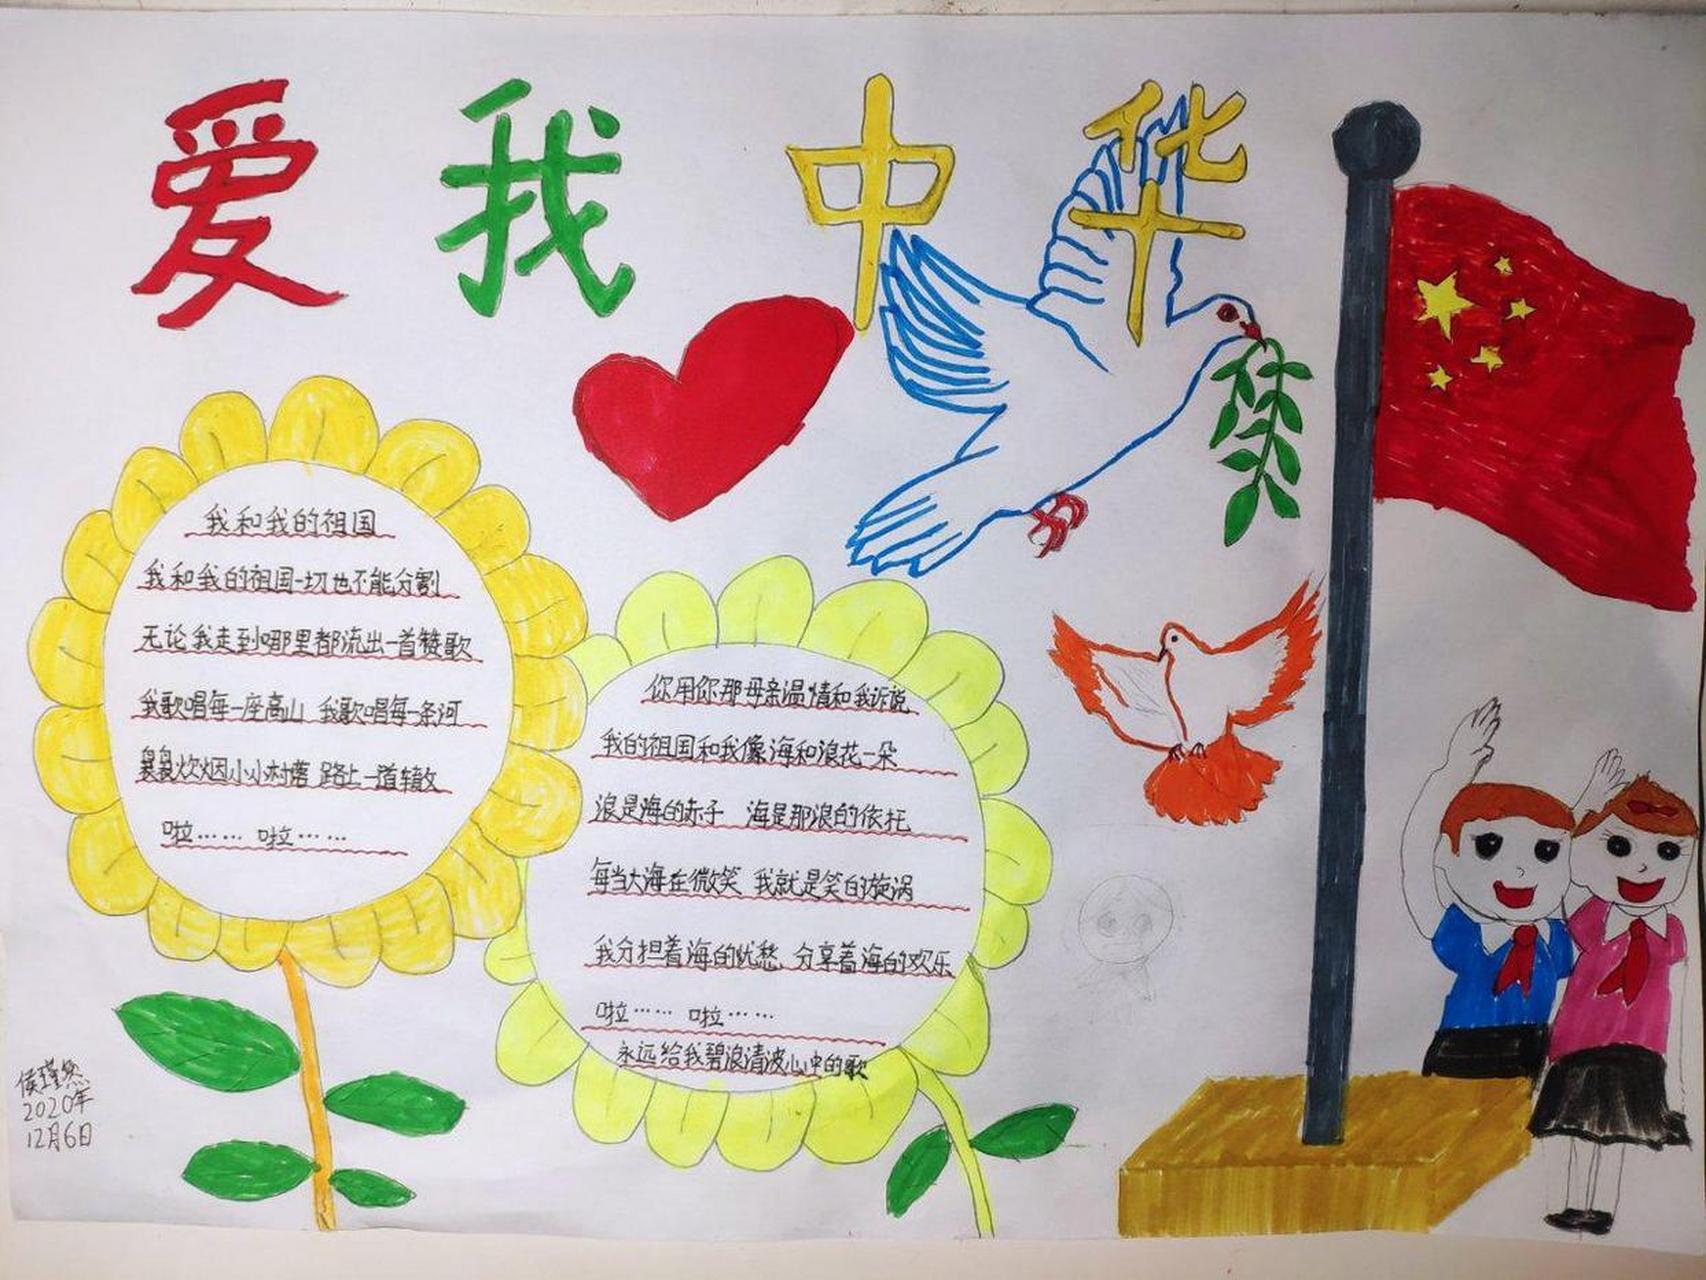 爱我中华
我和我的祖国
我和我的祖国一切也不能分割
无论我走到哪里都流出一首赞歌
我歌唱每一座高山 我歌唱每一条河
袅袅炊烟小小村落 路上一道辙
啦…… 啦……
你用你那母亲温情和我诉说
我的祖国和我像海和浪花一朵
浪是海的赤子 海是那浪的依托
每当大海在微笑 我就是笑的旋涡
我分担着海的忧愁、分享着海的欢乐
啦…… 啦……
永远给我碧浪清波心中的歌
侯瑾悠
2020年
12月6日